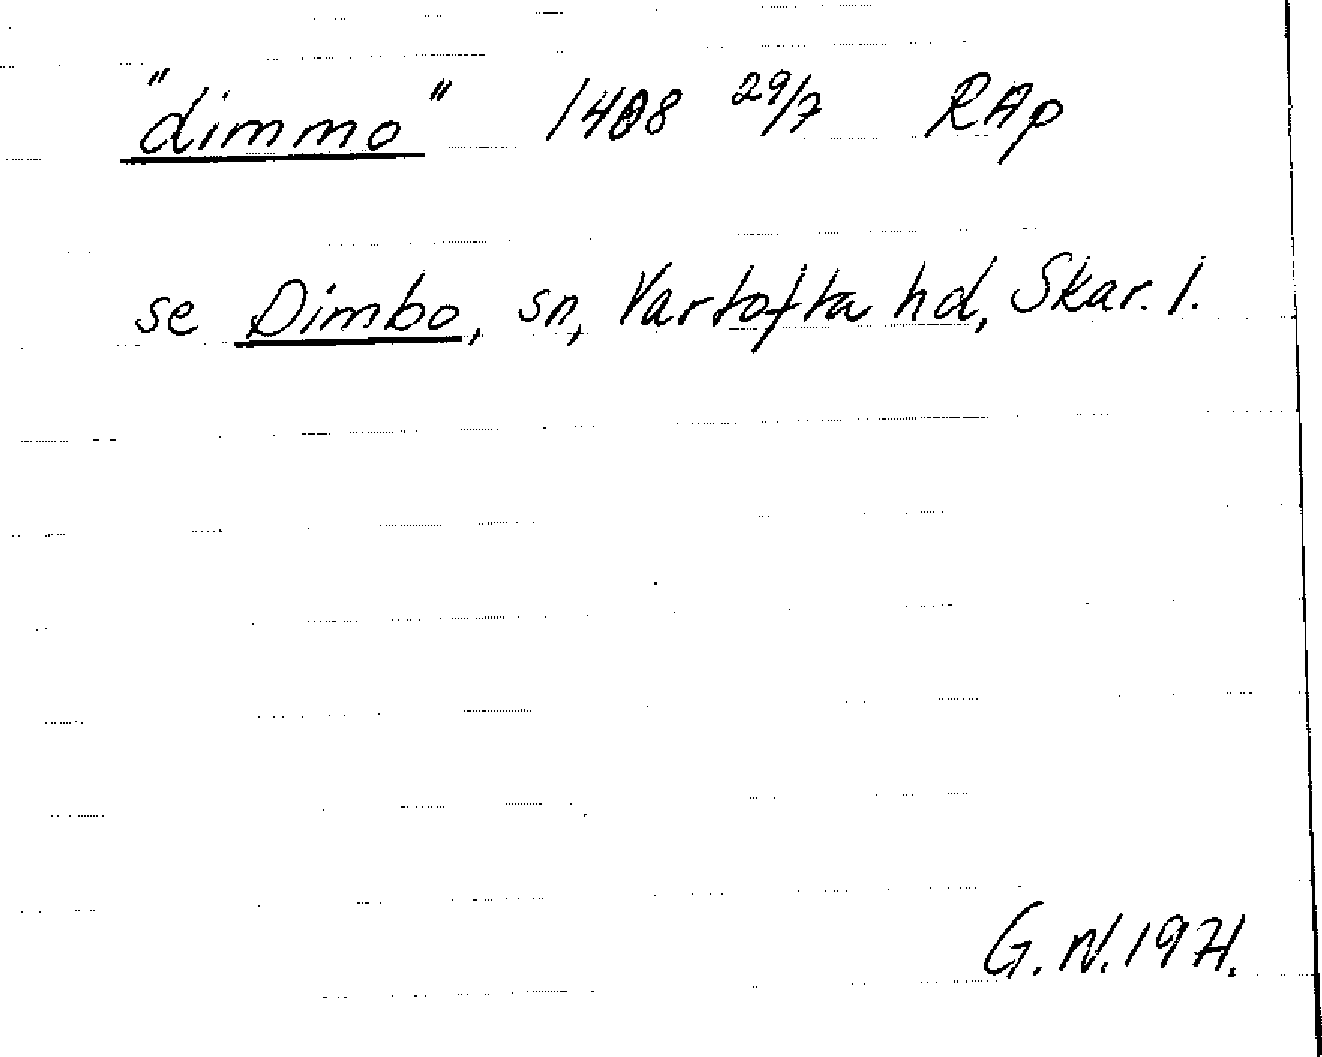 "dimmo" 1408 29/7 RAp
se Dimbo, sn, Vartofta hd, Skar. l.
G.N.1971.